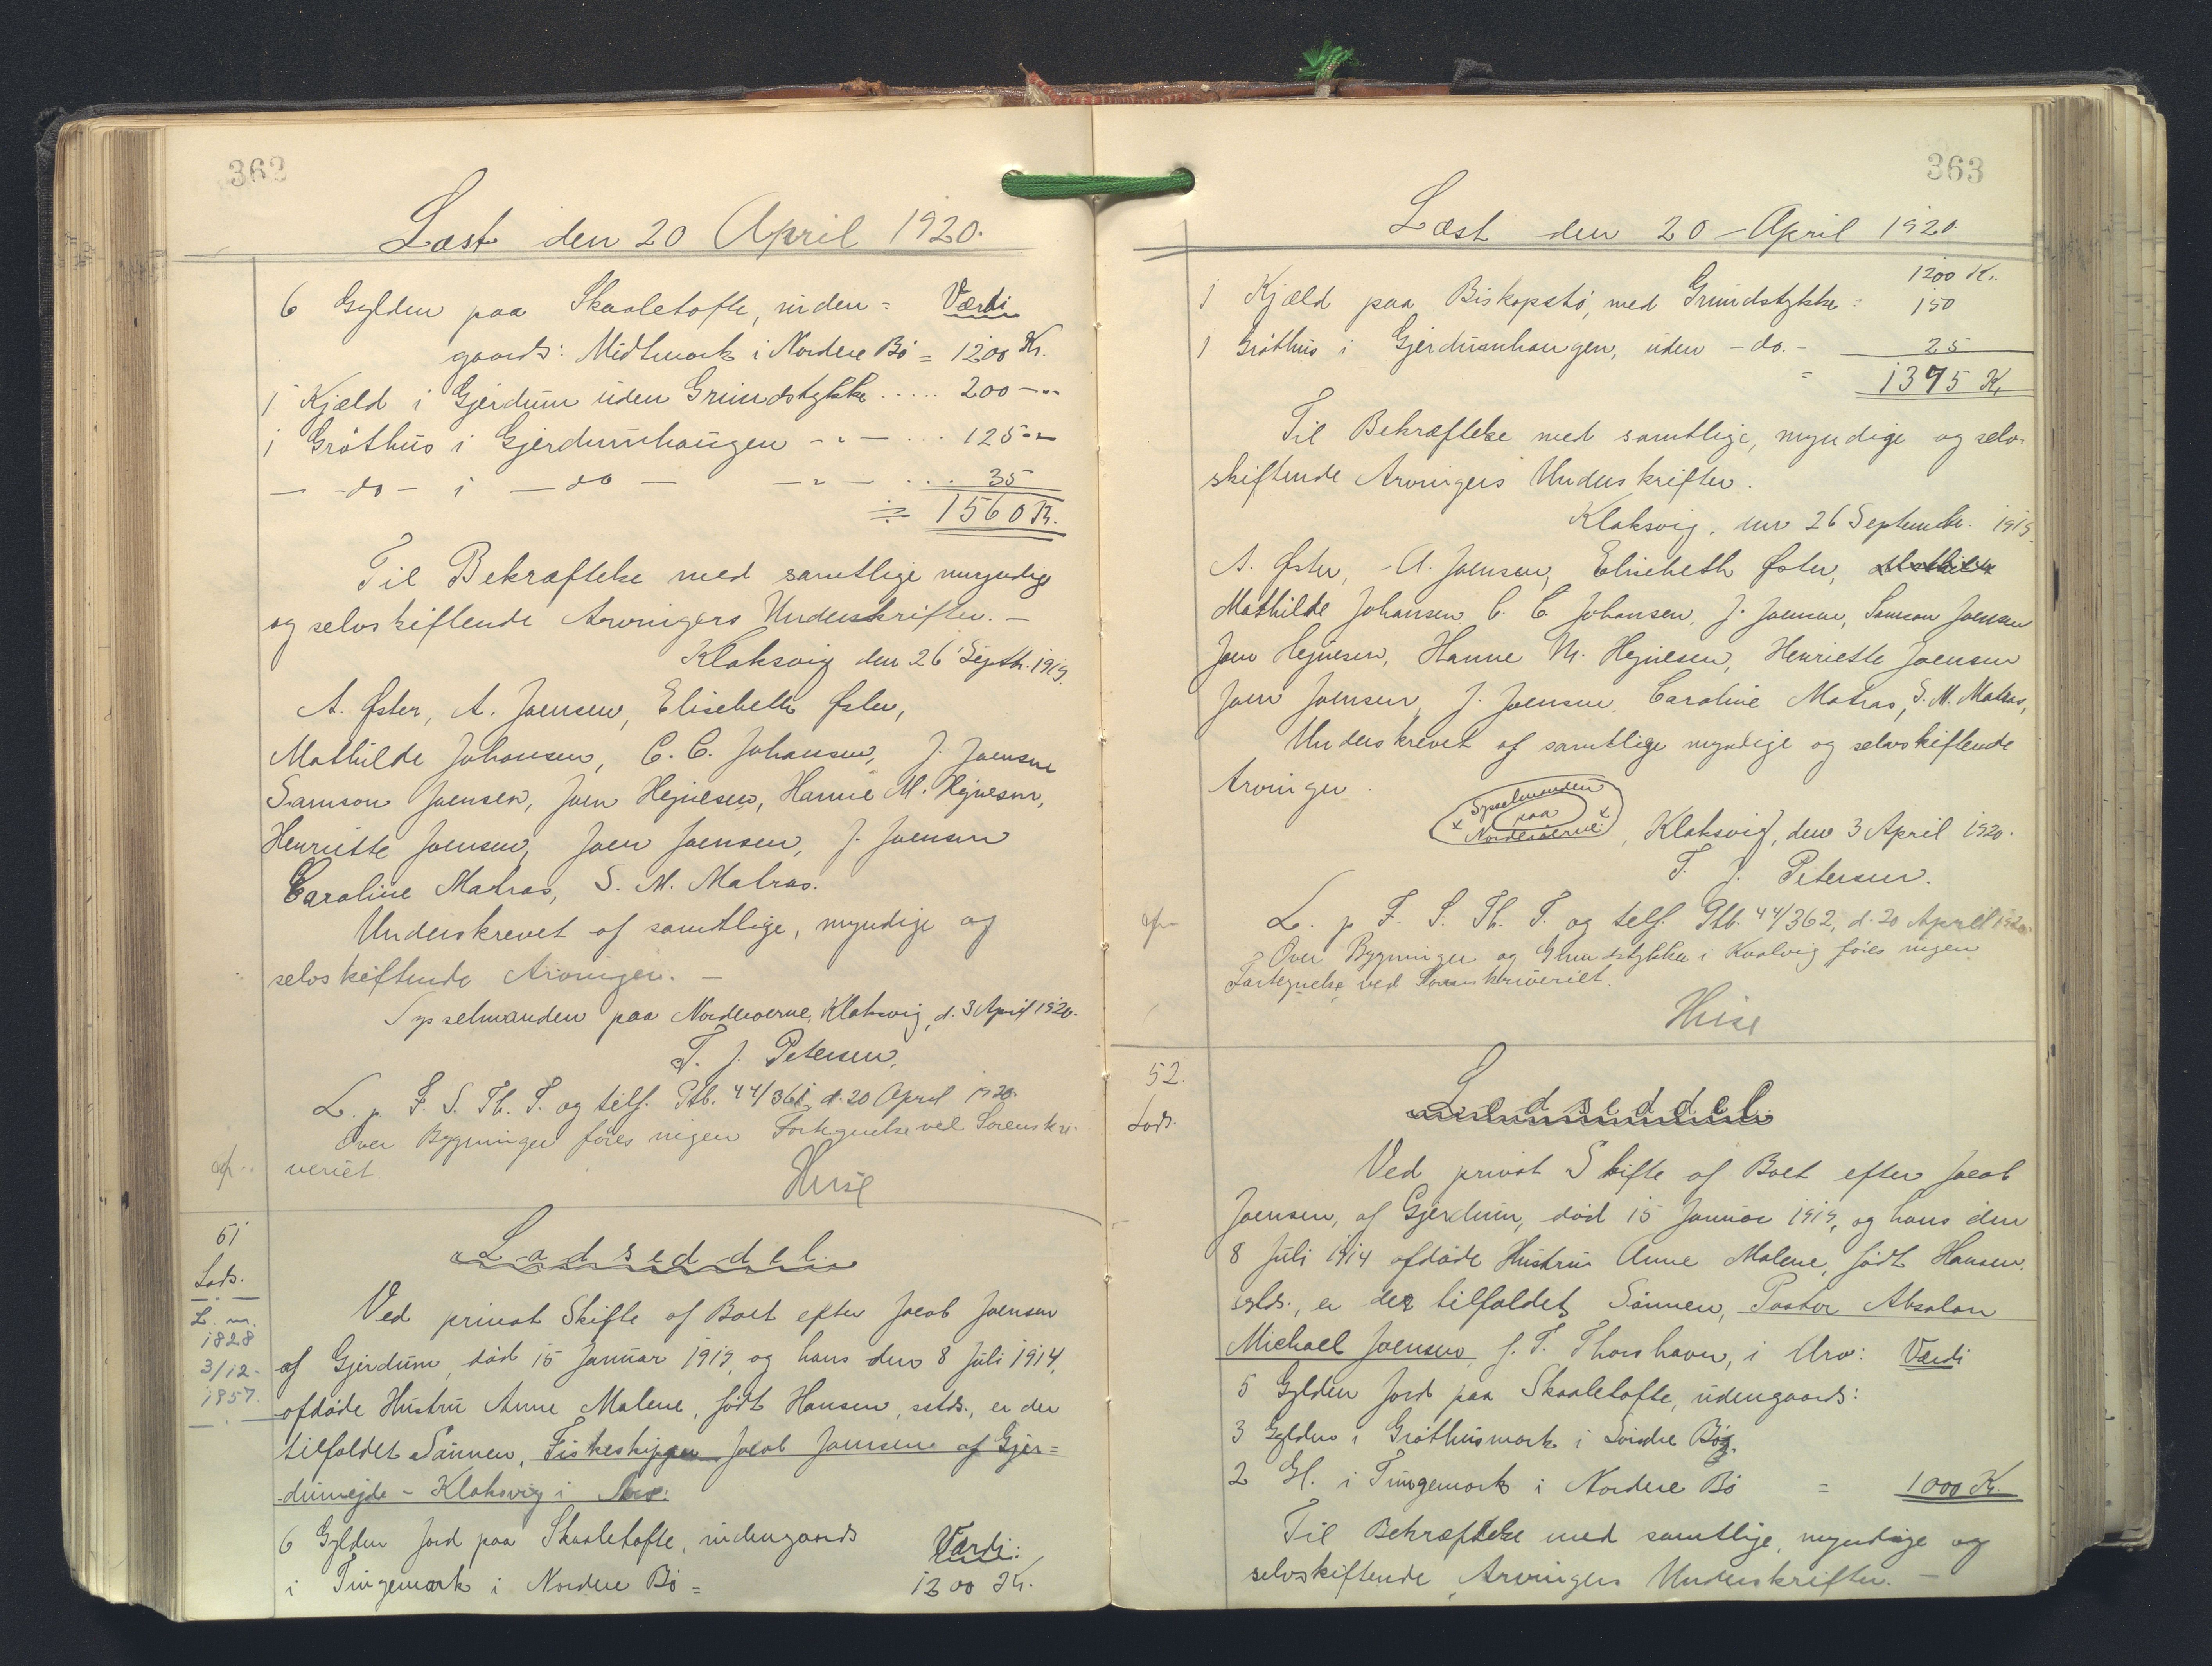 362
Læst den 20 April 1920.
6 Gylden paa Skaaletofte, inden = Værdi
gaards: Midtmark i Nordere Bø = 1200 Kr.
1 Kjæld i Gjerdum uden Grundstykke ..... 200 -"-
1 Gróthus i Gjerdumhaugen - " - ... 125 -"-
- do - i - do - - " - ... 35
= 1560 Kr.
Til Bekræftelse med samtlige myndige
og selvskiftende Arvingers Underskrifter. -
Klaksvig den 26 Septb. 1919.
A. Øster, A. Joensen, Elisebeth Øster,
Mathilde Johansen, C. C. Johansen, J. Joensen
Samson Joensen, Joen Hejnesen, Hanne M. Hejnesen,
Henriette Joensen, Joen Joensen, J. Joensen
Caroline Matras, S. M. Matras.
Underskrevet af samtlige, myndige og
selvskiftende Arvinger. -
Sysselmanden paa Norderøerne, Klaksvig, d. 3 April 1920.
T. J. Petersen.
L. p. F. S. Th. T. og tilf. Ptb. 44/361, d. 20 April 1920.
Over Bygninger føres ingen Fortegnelse ved Sorenskri-
veriet.
51
Lods.
L. m.
1828
3/12-
1957.
Ladseddel.
Ved privat Skifte af Boet efter Jacob Joensen
af Gjerdum, død 15 Januar 1919, og hans den 8 Juli 1914,
afdøde Hustru Anne Malene, født Hansen, sstds., er der
tilfaldet Sønnen, Fiskeskipper Jacob Joensen af Gjer=
dumejde - Klaksvig i Arv:
6 Gylden Jord paa Skaaletofte, indengaards Værdi:
i Tungemark i Nordere Bø = 1200 Kr.
363
Læst den 20 - April 1920.
1200 Kr.
1 Kjæld paa Biskopstø, med Grundstykke = 150
1 Gróthus i Gjerdumhaugen, uden - do. - 25
= 1375 Kr.
Til Bekræftelse med samtlige, myndige og selv-
skiftende Arvingers Underskrifter.
Klaksvig, den 26 September 1919.
A. Øster, A. Joensen, Elisebeth Øster, Mathilde
Mathilde Johansen, C. C. Johansen, J. Joensen, Samson Joensen
Joen Hejnesen, Hanne M. Hejnesen, Henriette Joensen
Joen Joensen, J. Joensen, Caroline Matras, S. M. Matras,
Underskrevet af samtlige myndige og selvskiftende
Arvinger.
Sysselmanden
x paa x
Norderøerne, Klaksvig, den 3 April 1920.
T. J. Petersen.
L. p. F. S. Th. T. og tilf. Ptb. 44/362, d. 20 April 1920
Over Bygninger og Grundstykker i Kvalvig føres ingen
Fortegnelse ved Sorenskriveriet.
52.
Lods.
Lodseddel
Ved privat Skifte af Boet efter Jacob
Joensen, af Gjerdum, død 15 Januar 1919, og hans den
8 Juli 1914 afdøde Hustru Anne Malene, født Hansen,
sstds., er der tilfaldet Sønnen, Pastor Absalon
Michael Joensen, f. T. Thorshavn, i Arv: Værdi
5 Gylden Jord paa Skaaletofte, udengaards:
3 Gylden i Gróthusmark i Søndre Bø,
2 Gl. i Tungemark i Nordere Bø = 1000 Kr.
Til Bekræftelse med samtlige, myndige og
selvskiftende Arvingers Underskrifter. -